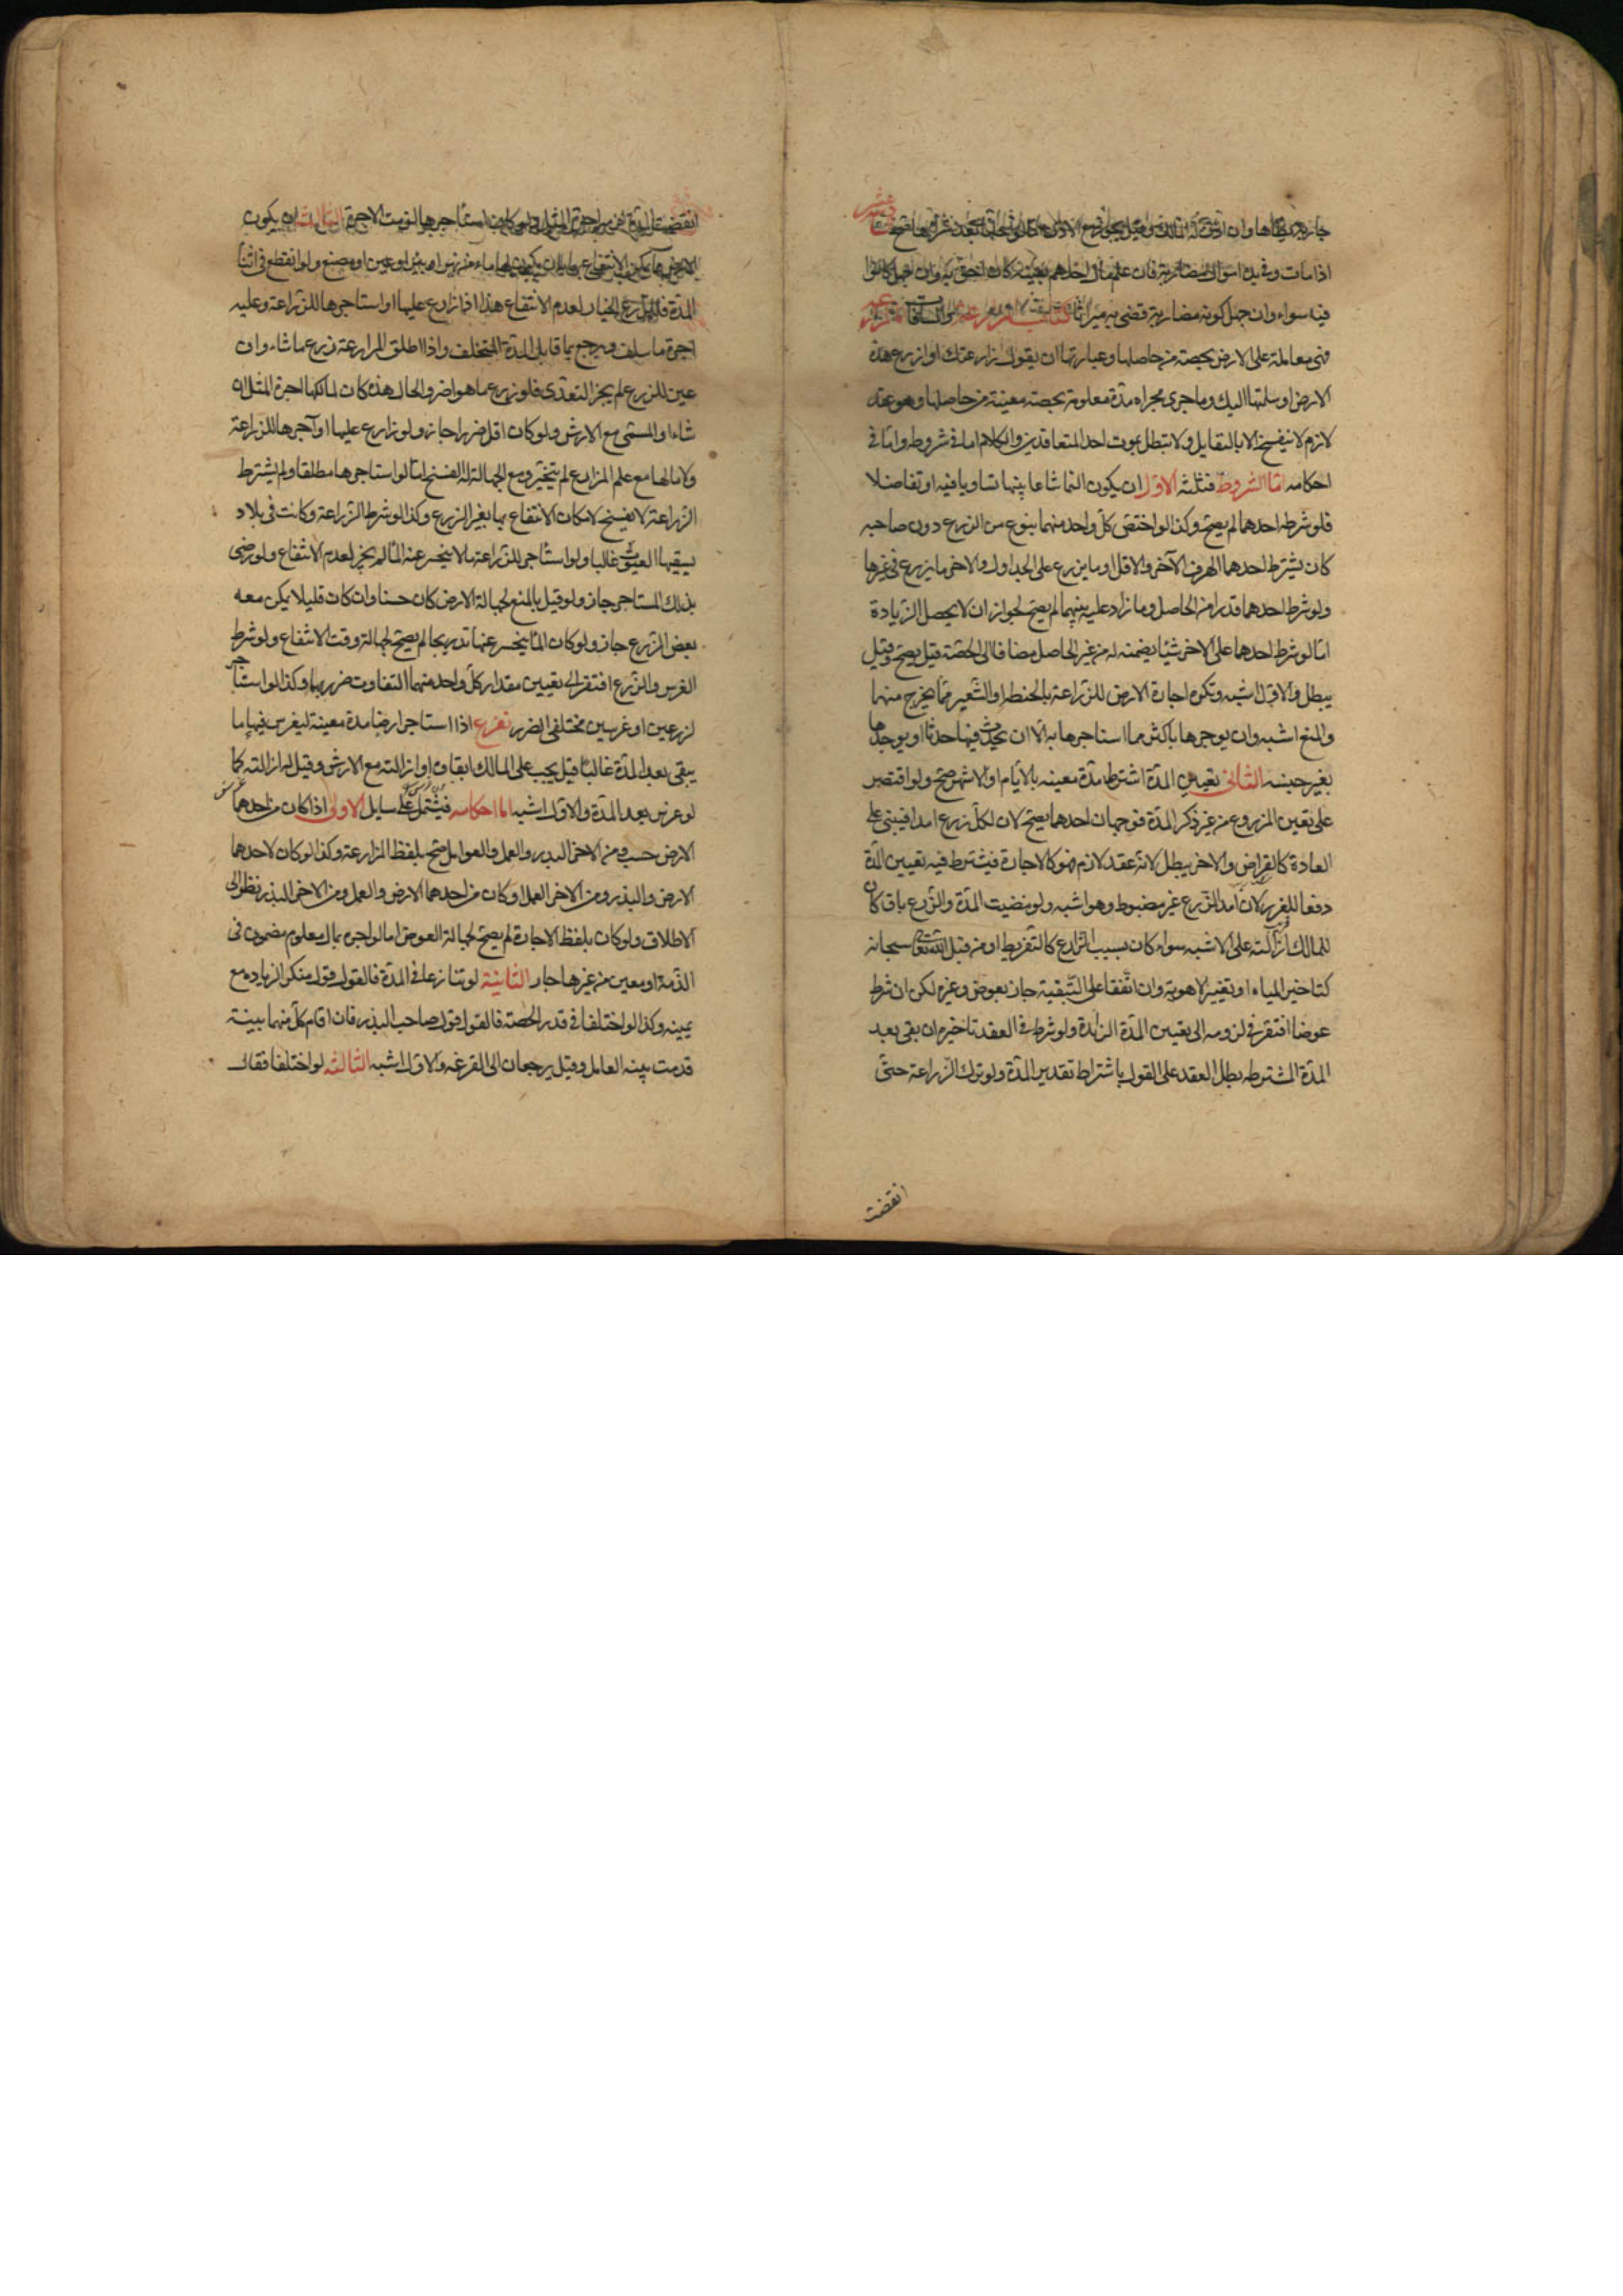 اذا مات وفى يده اموال مضاربة فان علم مال احدهم بعينه كان احق به وان جهل كانوا
فيه سواء وان جهل كونه مضاربة قضى به ميراثا كتاب المزارعة والمساقاة
فهى معاملة على الارض بحصة من حاصلها وعبارتها ان يقول زارعتك او ازرع هذه
الارض او سلمتها اليك وما جرى مجراه مدة معلومة بحصة معينة من حاصلها وهو عقد
لازم لا ينفسخ الا بالتقايل ولا يبطل بموت احد المتعاقدين والكلام اما فى شروطه واما فى
احكامه اما الشروط فثلثة الاول ان يكون النما مشاعا بينهما تساويا فيه او تفاضلا
فلو شرطه احدهما لم يصح وكذا لو اختص كل واحد منهما بنوع من الزرع دون صاحبه
كان يشترط احدهما الهرف والآخر الاقل او ما يزرع على الجداول والاخر ما يزرع فى غيرها
ولو شرط احدهما قدرا من الحاصل وما زاد عليه بينهما لم يصح لجواز ان لا يحصل الزيادة
اما لو شرط احدهما على الاخر شيئا يضمنه له من غير الحاصل مضافا الى الحصة قيل يصح وقيل
يبطل والاول اشبه وتكره اجارة الارض للزراعة بالحنطة او الشعير مما يخرج منها
والمنع اشبه وان يوجرها باكثر مما استاجرها به الا ان يحدث فيها حدثا او يوجرها
بغير جنسه الثانى تعيين المدة اشترط مدة معينه بالايام او الاشهر صح ولو اقتصر
على تعين المزروع من غير ذكر المدة فوجهان احدهما يصح لان لكل زرع امدا فيبنى على
العادة كالقراض والاخر يبطل لانه عقد لازم فهو كالاجارة فيشترط فيه تعيين المدة
دفعا للغرر لان امد الزرع غير مضبوط وهو اشبه ولو مضيت المدة والزرع باق كان
للمالك ازالته على الاشبه سواء كان بسبب الزارع كالتفريط او من قبل الله سبحانه
كتاخير المياه او تغيير الاهوية وان اتفقا على التبقية جاز بعوض وغيره لكن ان شرط
عوضا افتقر فى لزومه الى تعيين المدة الزائدة ولو شرط فى العقد تاخيره ان بقى بعد
المدة المشترطه بطل العقد على القول باشتراط تقدير المدة ولو ترك الزراعة حتى
انقضت
انقضت المدة لزمه اجرة المثل ولو كان استاجرها لزمت الاجرة الثالث ان يكون
الارض مما يمكن الانتفاع بها بان يكون لها ماء من نهر او بئر او عين او مصنع ولو انقطع فى اثنا
المدة فللمزارع الخيار لعدم الانتفاع هذا اذا زارع عليها او استاجرها للزراعة وعليه
اجرة ما سلف ويرجع بما قابل المدة المتخلفه واذا اطلق المزارعة زرع ما شاء وان
عين الزرع لم يجز التعدى فلو زرع ما هو اضر والحال هذه كان لمالكها اجرة المثل ان
شاء او المسمى مع الارش ولو كان اقل ضررا جاز ولو زارع عليها او آجرها للزراعة
ولا ما لها مع علم المزارع لم يتخير ومع الجهالة له الفسخ اما لو استاجرها مطلقا ولم يشترط
الزراعة لا يفسخ لامكان الانتفاع بها بغير الزرع وكذا لو شرط الزراعة وكانت فى بلاد
يسقيها الغيوث غالبا ولو استأجر للزراعة ما لا ينحسر عنه الماء لم يجز لعدم الانتفاع ولو رضى
بذلك المستاجر جاز ولو قيل بالمنع لجهالة الارض كان حسنا وان كان قليلا يمكن معه
بعض الزرع جاز ولو كان الماء ينحسر عنها تدريجا لم يصح لجهالة وقت الانتفاع ولو شرط
الغرس والزرع افتقر الى تعيين مقدار كل واحد منهما لتفاوت ضرريهما وكذا لو استأجر
لزرعين او غرسين مختلفى الضرر تفريع اذا استاجر ارضا مدة معينة ليغرس فيها ما
يبقى بعد المدة غالبا قيل يجب على المالك ابقاؤه او ازالته مع الارش وقيل له ازالته كما
لو غرس بعد المدة والاول اشبه اما احكامه فيشتمل على مسايل الاولى اذا كان من احدهما
الارض حسب ومن الاخر البذر والعمل والعوامل صح بلفظ المزارعة وكذا لو كان لاحدهما
الارض والبذر ومن الاخر العمل او كان من احدهما الارض والعمل ومن الاخر البذر نظرا الى
الاطلاق ولو كان بلفظ الاجارة لم يصح لجهالة العوض اما لو اجره بمال معلوم مضمون فى
الذمة او معين من غيرها جاز الثانية لو تنازعا فى المدة فالقول قول منكر الزياده مع
يمينه وكذا لو اختلفا فى قدر الحصته فالقول قول صاحب البذر فان اقام كل منهما بينة
قدمت بينه العامل وقيل يرجعان الى القرعه والاول اشبه الثالثه لو اختلفا فقال